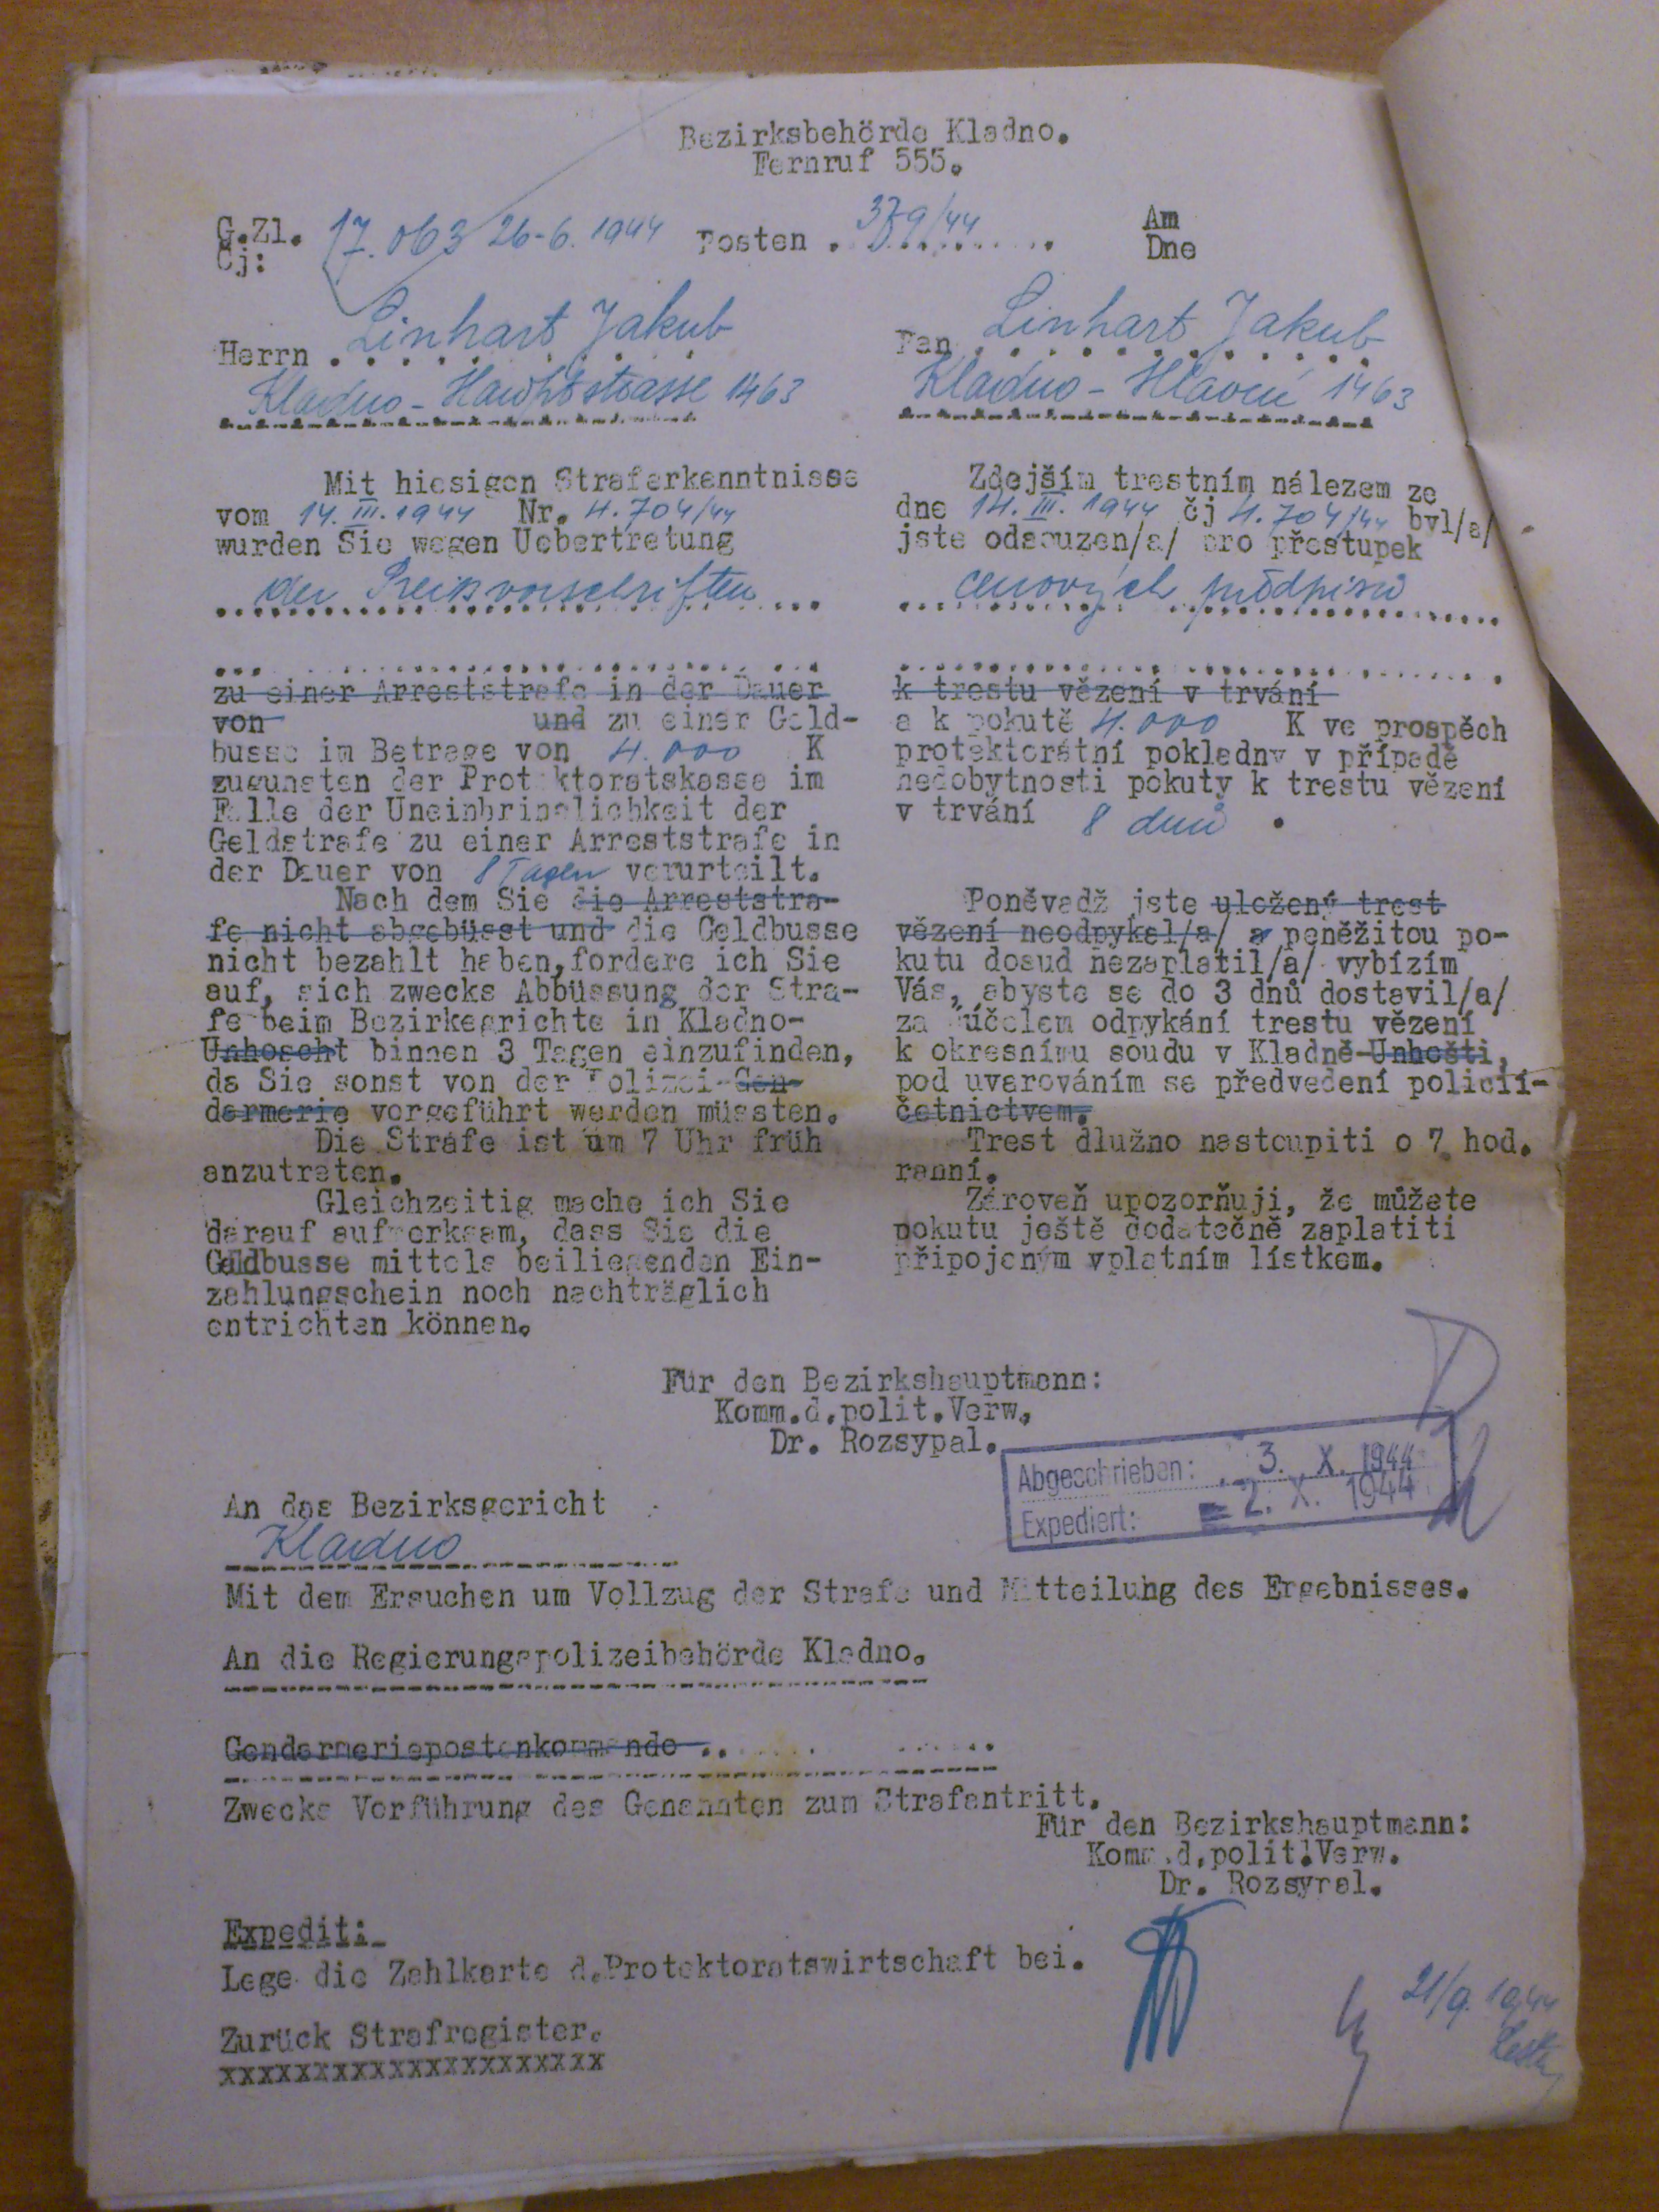 Bezirksbehörde Kladno.
Fernruf 555.
G.Zl. 17.063 26-6. 1944 Posten . 379/44 Am
Čj: Dne
Herrn . Linhart Jakub
Kladno - Hauptstrasse 1463
Mit hiesigen Straferkenntnisse
vom 14. III. 1944 Nr. 4.704/44
wurden Sie wegen Uebertretung
der Preisvorschriften
zu einer Arreststrafe in der Dauer
von und zu einer Geld-
busse im Betrage von 4.000 K
zugunsten der Protektoratskasse im
Falle der Uneinbringlichkeit der
Geldstrafe zu einer Arreststrafe in
der Dauer von 8 Tagen verurteilt.
Nach dem Sie die Arreststra-
fe nicht abgebüsst und die Geldbusse
nicht bezahlt haben, fordere ich Sie
auf, sich zwecks Abbüssung der Stra-
fe beim Bezirkegrichte in Kladno-
Unhoscht binnen 3 Tagen einzufinden,
da Sie sonst von der Polizei-Gen-
darmerie vorgeführt werden müssten.
Die Strafe ist um 7 Uhr früh
anzutreten.
Gleichzeitig mache ich Sie
darauf aufmerksam, dass Sie die
Geldbusse mittels beiliegenden Ein-
zahlungschein noch nachträglich
entrichten können.
Pan Linhart Jakub
Kladno - Hlavní 1463
Zdejším trestním nálezem ze
dne 14. III. 1944 čj 4.704/44 byl/a/
jste odsouzen/a/ pro přestupek
cenových předpisů
k trestu vězení v trvání
a k pokutě 4.000 K ve prospěch
protektorátní pokladny v případě
nedobytnosti pokuty k trestu vězení
v trvání 8 dnů .
Poněvadž jste uložený trest
vězení neodpykal/a/ a peněžitou po-
kutu dosud nezaplatil/a/ vybízím
Vás, abyste se do 3 dnů dostavil/a/
za účelem odpykání trestu vězení
k okresnímu soudu v Kladně-Unhošti,
pod uvarováním se předvedení policií-
četnictvem.
Trest dlužno nastoupiti o 7 hod.
ranní.
Zároveň upozorňuji, že můžete
pokutu ještě dodatečně zaplatiti
připojeným vplatním lístkem.
Für den Bezirkshauptmann:
Komm.d.polit.Verw.
Dr. Rozsypal.
Abgeschrieben: 3. X. 1944
Expediert: 2. X. 1944
An das Bezirksgericht
Kladno
Mit dem Ersuchen um Vollzug der Strafe und Mitteilung des Ergebnisses.
An die Regierungspolizeibehörde Kladno.
Gendarmeriepostenkommando ..
Zwecks Vorführung des Genannten zum Strafantritt.
Für den Bezirkshauptmann:
Komm.d.polit.Verw.
Dr. Rozsypal.
Expedit:
Lege die Zahlkarte d.Protektoratswirtschaft bei.
21/9. 1944
Zurück Strafregister.
xxxxxxxxxxxxxxxxxxxxx